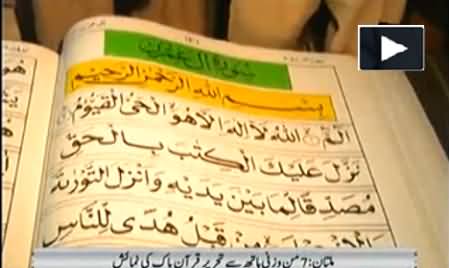 سُورَةُ اٰلِ عِمْرٰنَ
بِسْمِ اللهِ الرَّحْمٰنِ الرَّحِيْمِ
الٓمّٓ اللهُ لَآ اِلٰهَ اِلَّا هُوَ الْحَيُّ الْقَيُّوْمُ
نَزَّلَ عَلَيْكَ الْكِتٰبَ بِالْحَقِّ
مُصَدِّقًا لِّمَا بَيْنَ يَدَيْهِ وَاَنْزَلَ التَّوْرٰىةَ
مِنْ قَبْلُ هُدًى لِّلنَّاسِ
ملتان: 7 من وزنی ہاتھ سے تحریر قرآن پاک کی نمائش